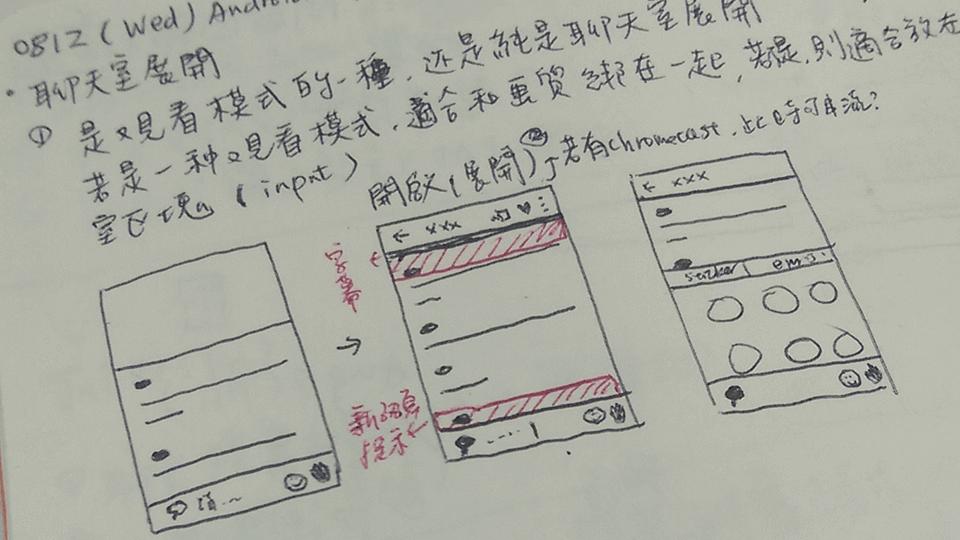 0812 (Wed) Android
• 聊天室展開
① 是观看模式的一種，还是純是聊天室展開
若是一种观看模式，適合和画質綁在一起，若是，則適合放在
室区塊 (input)
開啟(展開)
② 若有chromecast，此時可串流？
← xxx
← xxx
字幕
sticker
新訊息
提示
.... |